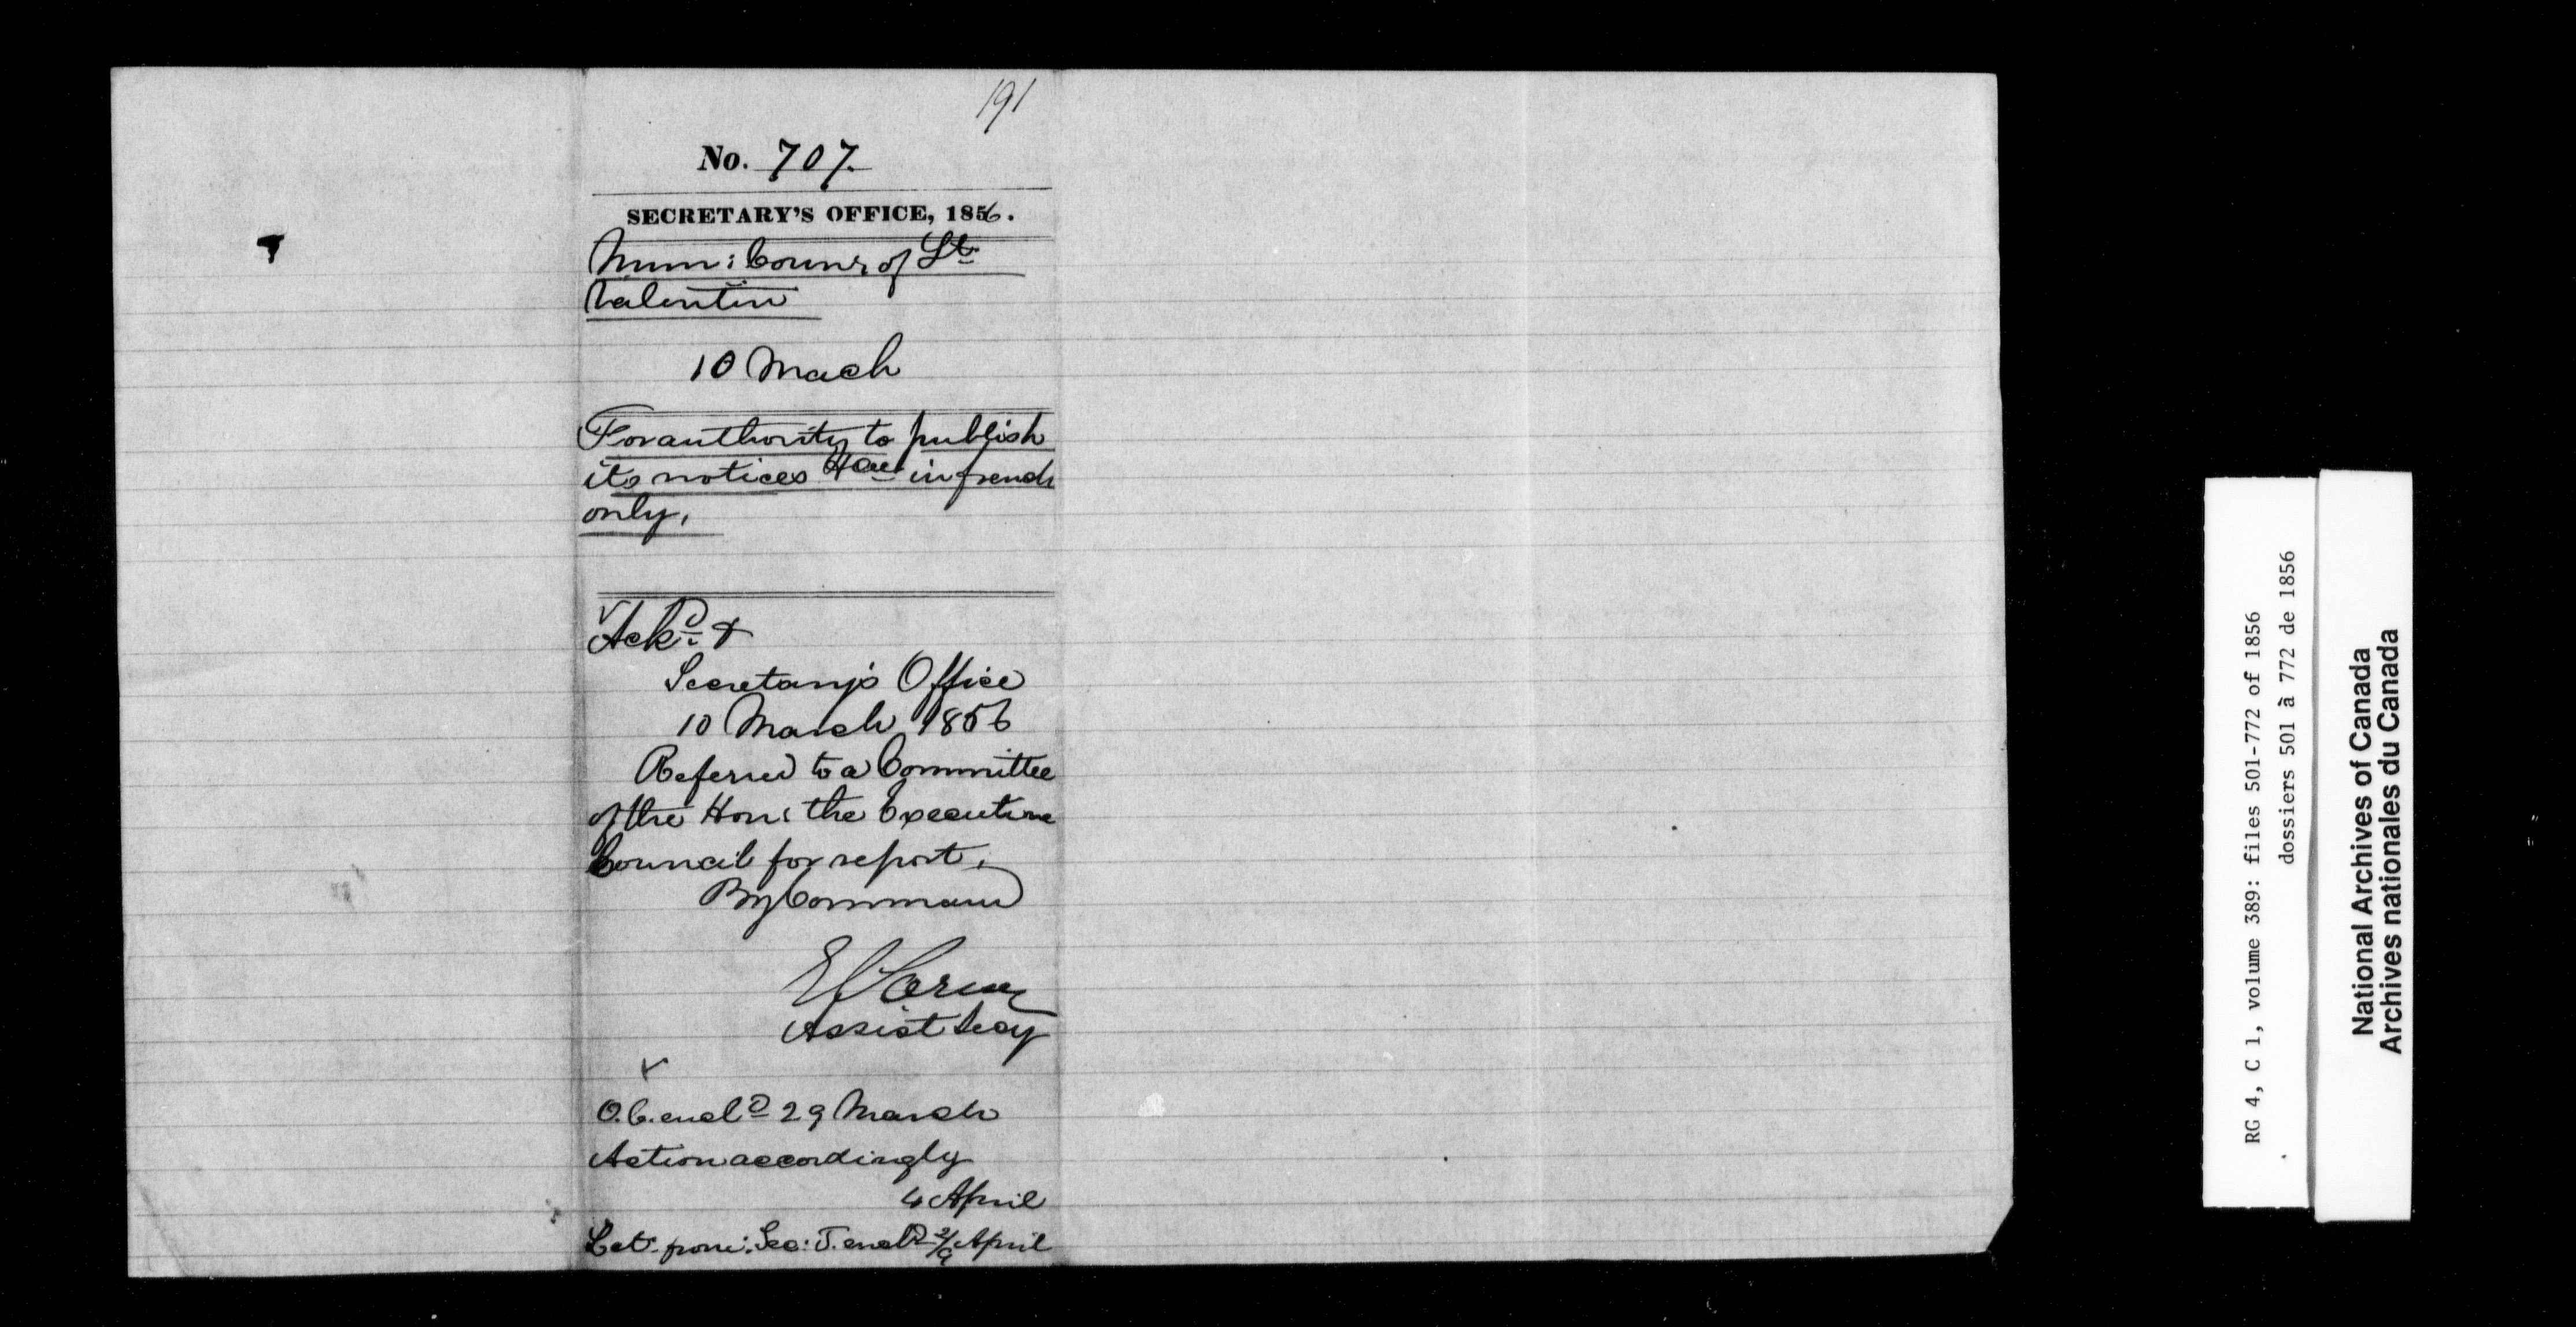 191
No. 707.
SECRETARY'S OFFICE, 1856.
Mun: Counr of St.
Valentin
10 Mach
For authority to publish
its notices &ca in french
only.
Ackd. &
Secretary's Office
10 March 1856
Referred to a Committee
of the Hon: the Executive
Council for report.
By Command
Assist Secy
O.C. encld 29 March
Action accordingly
4 April
Let. from: Sec: T. encld 2/9 April
RG 4, C 1, volume 389: files 501-772 of 1856
dossiers 501 à 772 de 1856
National Archives of Canada
Archives nationales du Canada